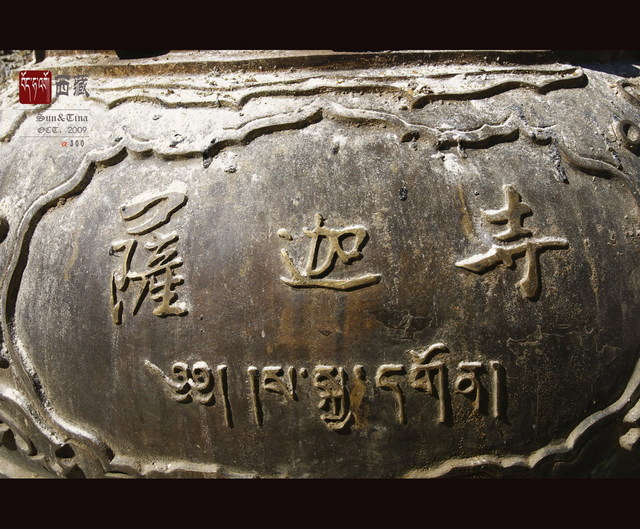 西藏
Sun&Tina
OCT. 2009
α300
薩迦寺
༄༅། །ས་སྐྱ་དགོན།